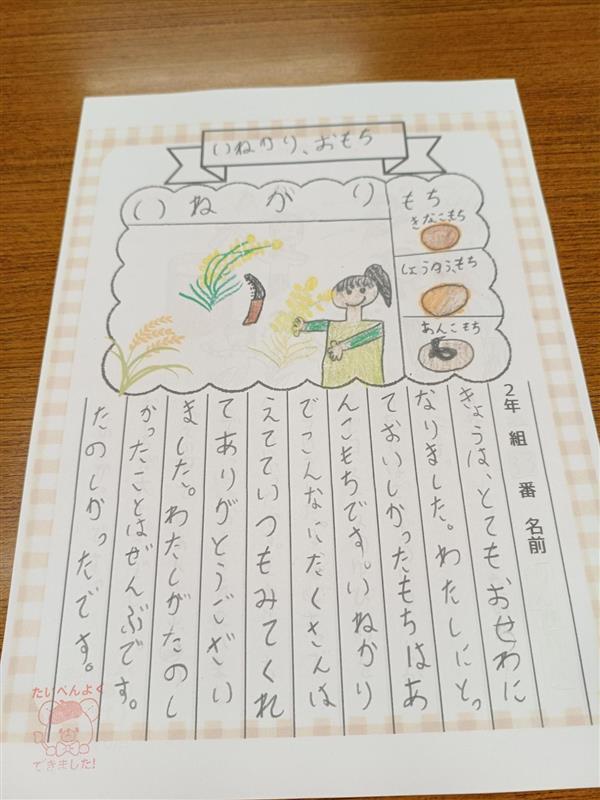 いねかり、おもち
いねがり
もち
きなこもち
しょうゆうもち
あんこもち
2年 組 番 名前
きょうは、とてもおせわに
なりました。わたしにとっ
ておいしかったもちはあ
んこもちです。いねかり
でこんなにたくさんは
えてていつもみてくれ
てありがとうござい
ました。わたしがたのし
かったことはぜんぶです。
たのしかったです。
たいへんよく
できました!